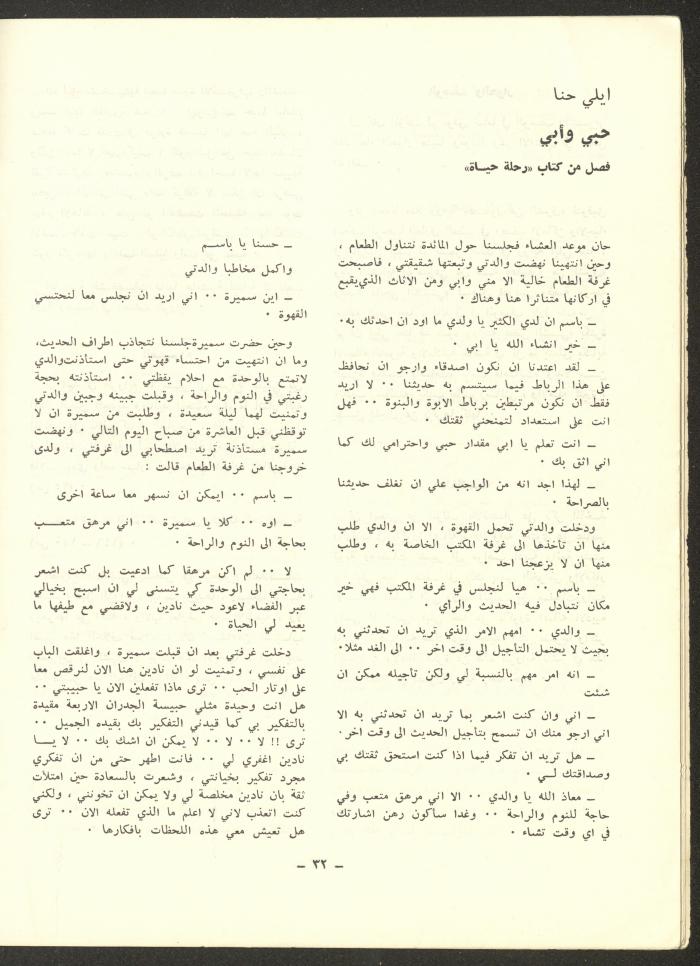 ايلي حنا
حبي وأبي
فصل من كتاب «رحلة حيـاة»
حان موعد العشاء فجلسنا حول المائدة نتناول الطعام ،
وحين انتهينا نهضت والدتي وتبعتها شقيقتي ، فاصبحت
غرفة الطعام خالية الا مني وابي ومن الاثاث الذي يقبع
في اركانها متناثرا هنا وهناك ٠
ــ باسم ان لدي الكثير يا ولدي ما اود ان احدثك به٠
ــ خير انشاء الله يا ابي ٠
ــ لقد اعتدنا ان نكون اصدقاء وارجو ان نحافظ
على هذا الرباط فيما سيتسم به حديثنا ٠٠ لا اريد
فقط ان نكون مرتبطين برباط الابوة والبنوة ٠٠ فهل
انت على استعداد لتمنحني ثقتك ٠
ــ انت تعلم يا ابي مقدار حبي واحترامي لك كما
اني اثق بك ٠
ــ لهذا اجد انه من الواجب علي ان نغلف حديثنا
بالصراحة ٠
ودخلت والدتي تحمل القهوة ، الا ان والدي طلب
منها ان تأخذها الى غرفة المكتب الخاصة به ، وطلب
منها ان لا يزعجنا احد ٠
ــ باسم ٠٠ هيا لنجلس في غرفة المكتب فهي خير
مكان نتبادل فيه الحديث والرأي ٠
ــ والدي ٠٠ امهم الامر الذي تريد ان تحدثني به
بحيث لا يحتمل التأجيل الى وقت اخر ٠٠ الى الغد مثلا٠
ــ انه امر مهم بالنسبة لي ولكن تأجيله ممكن ان
شئت
ــ اني وان كنت اشعر بما تريد ان تحدثني به الا
اني ارجو منك ان تسمح بتأجيل الحديث الى وقت اخر٠
ــ هل تريد ان تفكر فيما اذا كنت استحق ثقتك بي
وصداقتك لـي ٠
ــ معاذ الله يا والدي ٠٠ الا اني مرهق متعب وفي
حاجة للنوم والراحة ٠٠ وغدا سأكون رهن اشارتك
في اي وقت تشاء ٠
ــ حسنا يا باسـم
واكمل مخاطبا والدتي
ــ اين سميرة ٠٠ اني اريد ان نجلس معا لنحتسي
القهوة ٠
وحين حضرت سميرة جلسنا نتجاذب اطراف الحديث،
وما ان انتهيت من احتساء قهوتي حتى استأذنت والدي
لاتمتع بالوحدة مع احلام يقظتي ٠٠ استأذنته بحجة
رغبتي في النوم والراحة ، وقبلت جبينه وجبين والدتي
وتمنيت لهما ليلة سعيدة ، وطلبت من سميرة ان لا
توقظني قبل العاشرة من صباح اليوم التالي ٠ ونهضت
سميرة مستأذنة تريد اصطحابي الى غرفتي ، ولدى
خروجنا من غرفة الطعام قالت :
ــ باسم ٠٠ ايمكن ان نسهر معا ساعة اخرى
ــ اوه ٠٠ كلا يا سميرة ٠٠ اني مرهق متعـب
بحاجة الى النوم والراحة ٠
لا ٠٠ لم اكن مرهقا كما ادعيت بل كنت اشعر
بحاجتي الى الوحدة كي يتسنى لي ان اسبح بخيالي
عبر الفضاء لاعود حيث نادين ، ولاقضي مع طيفها ما
يعيد لي الحياة ٠
دخلت غرفتي بعد ان قبلت سميرة ، واغلقت الباب
على نفسي ، وتمنيت لو ان نادين هنا الان لنرقص معا
على اوتار الحب ٠٠ ترى ماذا تفعلين الان يا حبيبتي ٠٠
هل انت وحيدة مثلي حبيسة الجدران الاربعة مقيدة
بالتفكير بي كما قيدني التفكير بك بقيده الجميل ٠٠
ترى !! لا ٠٠ لا ٠٠ لا يمكن ان اشك بك ٠٠ لا يـــا
نادين اغفري لي ٠٠ فانت اطهر حتى من ان تفكري
مجرد تفكير بخيانتي ، وشعرت بالسعادة حين امتلات
ثقة بان نادين مخلصة لي ولا يمكن ان تخونني ، ولكني
كنت اتعذب لاني لا اعلم ما الذي تفعله الان ٠٠ ترى
هل تعيش معي هذه اللحظات بافكارها ٠
ــ ٣٢ ــ